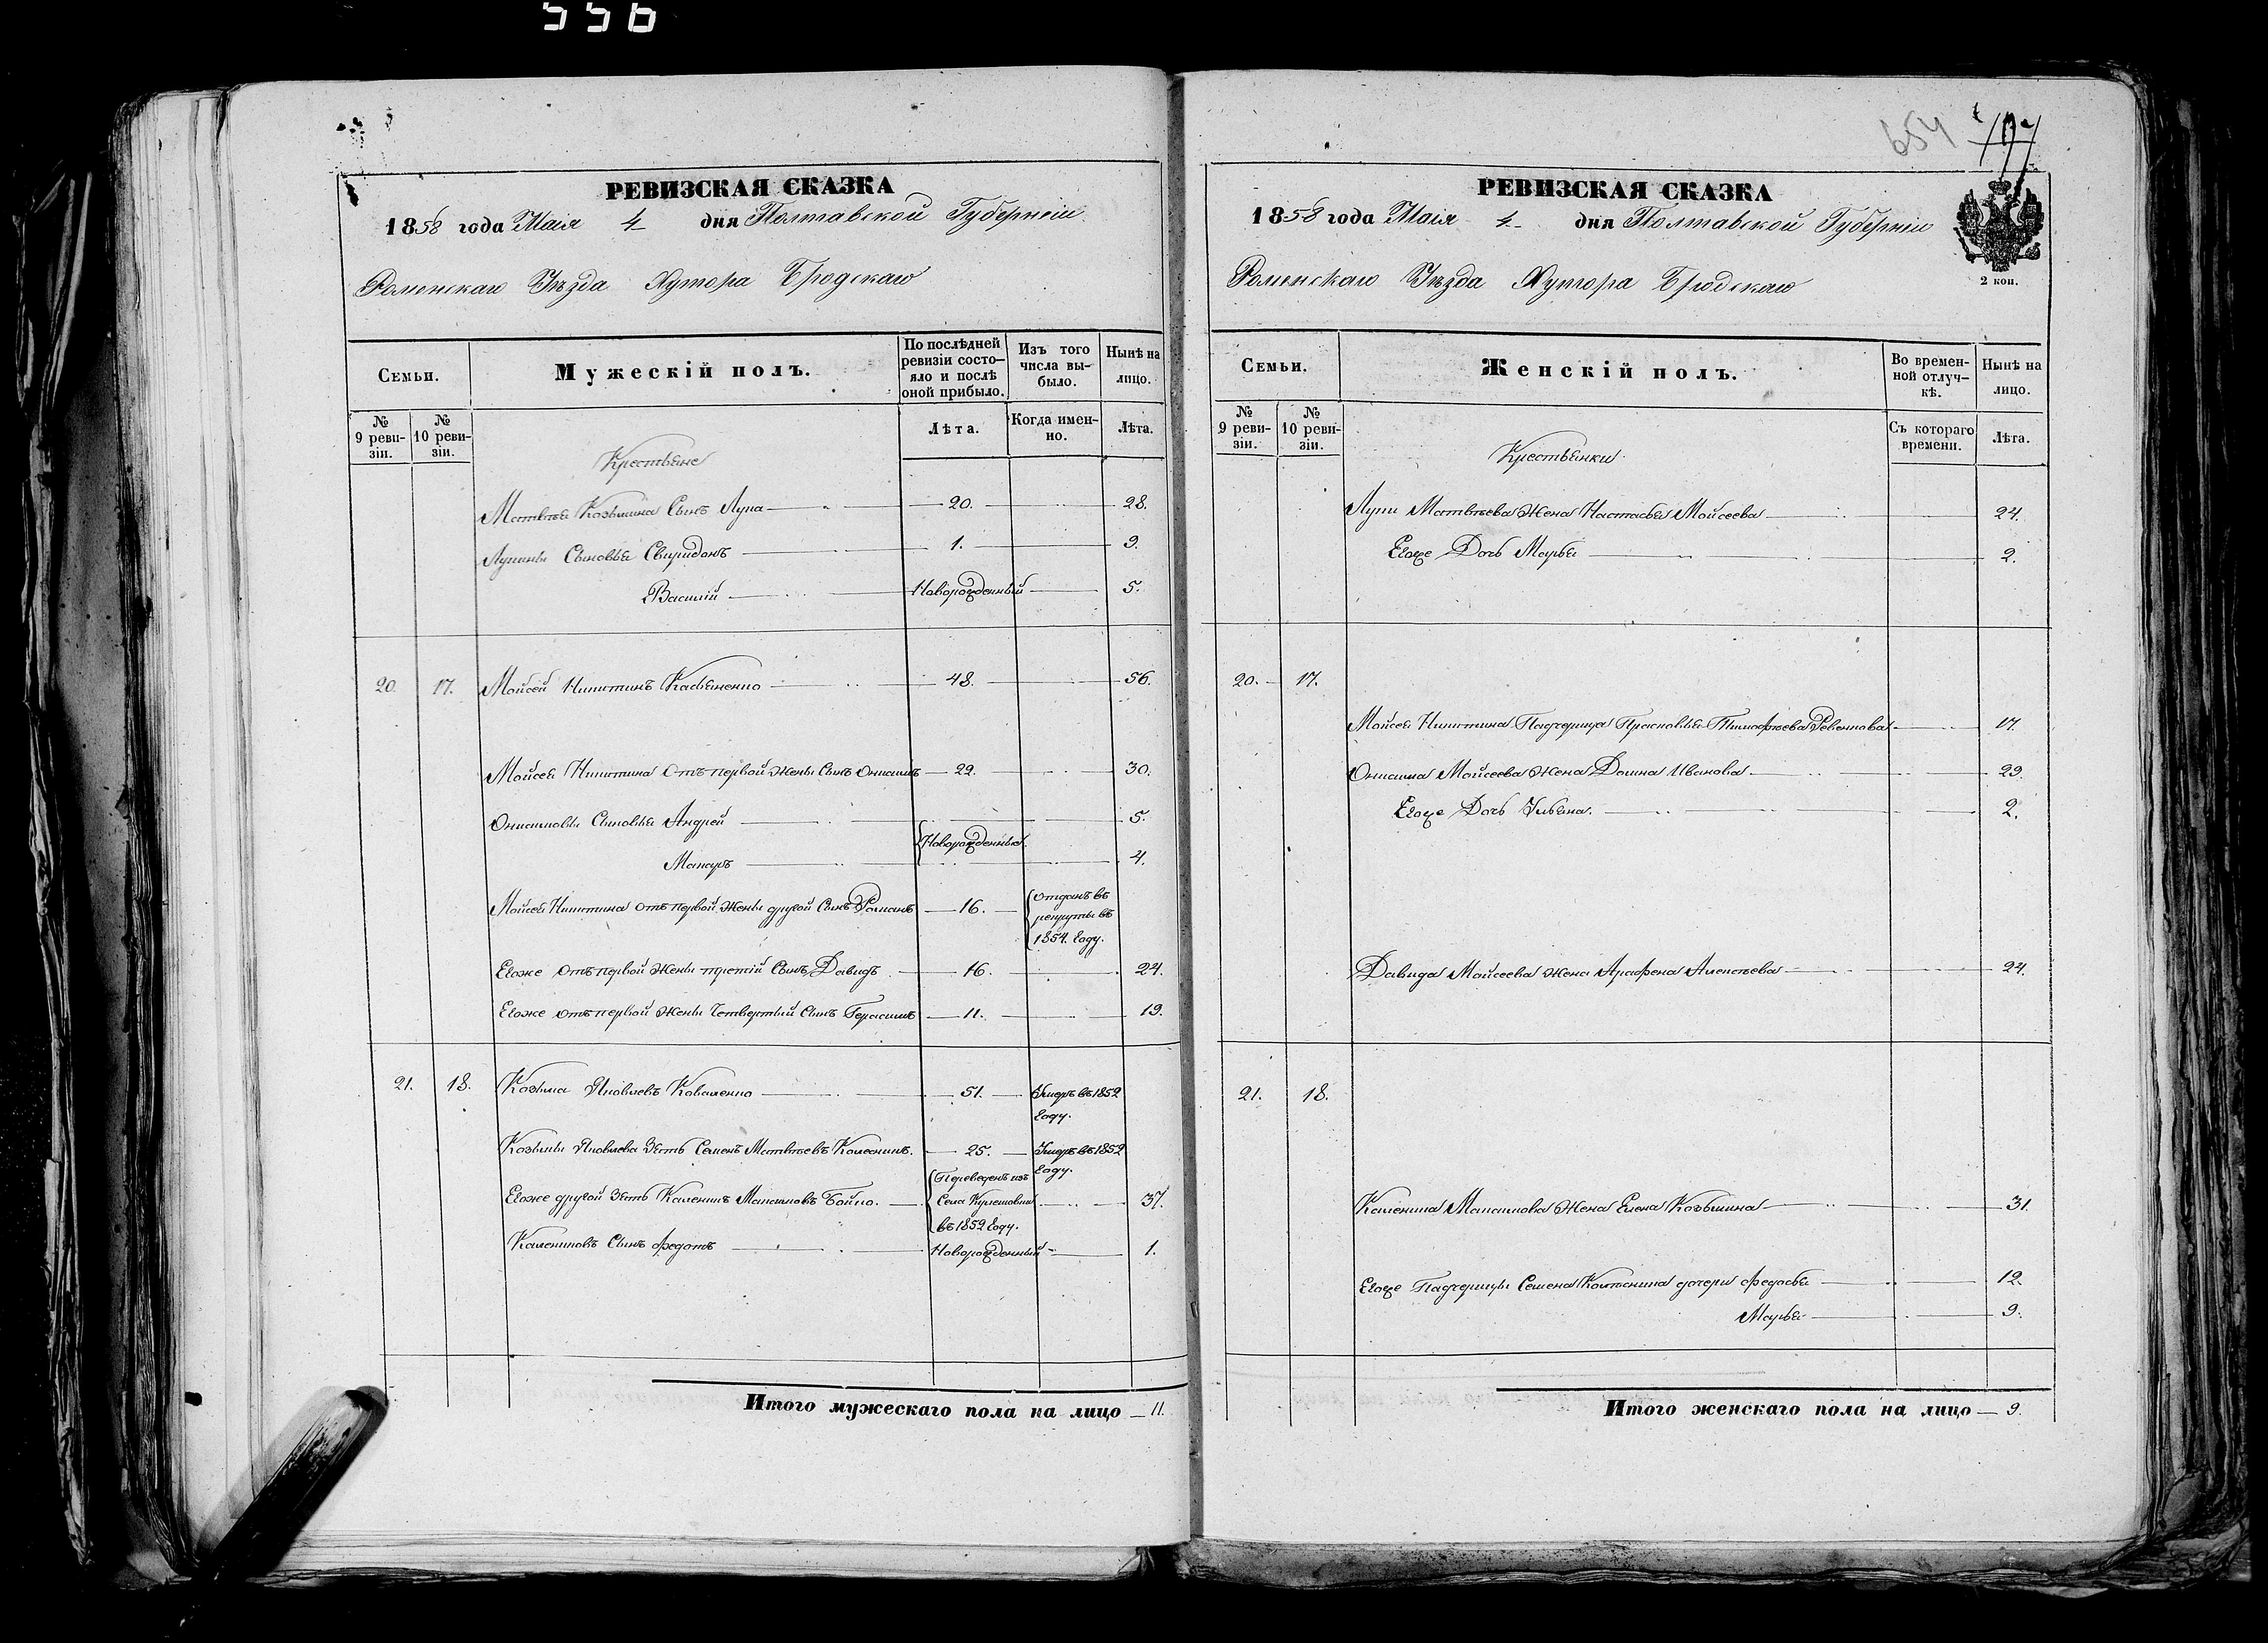 556
РЕВИЗСКАЯ СКАЗКА
1858 года Маія 4 дня Полтавской Губерніи
Роменскаго Уѣзда Хутора Бродскаго
Семьи.
Мужескій полъ.
По послѣдней ревизіи состо-
яло и послѣ
оной прибыло.
Изъ того
числа вы-
было.
Нынѣ на
лицо.
№
9 реви-
зіи.
№
10 реви-
зіи.
Лѣта.
Когда имен-
но.
Лѣта.
Крестьяне
Матвѣя Козьмина Сынъ Лупа 20. 28.
Лупины Сыновья Свиридонъ 1. 9.
Василій Новорожденный 5.
20. 17. Мойсей Никитинъ Касьяненко 48. 56.
Мойсея Никитина Отъ первой жены Сынъ Онисимъ 22. 30.
Онисимовы Сыновья Андрей 5.
Новорожденные.
Макаръ 4.
Мойсея Никитина отъ первой жены другой Сынъ Романъ 16. Отданъ въ
рекруты въ
1854. Году.
Егоже отъ первой жены третій Сынъ Давидъ 16. 24.
Егоже отъ первой жены Четвертый Сынъ Герасимъ 11. 19.
21. 18. Козьма Яковлевъ Коваленко 51. Умеръ въ 1852
Году.
Козьмы Яковлева Зять Семенъ Матвѣевъ Колесникъ. 25. Умеръ въ 1852
Году.
Егоже другой Зять Каленикъ Максимовъ Бойко. Переведенъ изъ
Села Кулешовки
въ 1852 Году. 37.
Калениковъ Сынъ Федотъ Новорожденный 1.
Итого мужескаго пола на лицо 11.
654
РЕВИЗСКАЯ СКАЗКА
1858 года Маія 4 дня Полтавской Губерніи
Роменскаго Уѣзда Хутора Бродскаго
2 коп.
Семьи.
Женскій полъ.
Во времен-
ной отлуч-
кѣ.
Нынѣ на
лицо.
№
9 реви-
зіи.
№
10 реви-
зіи.
Съ котораго
времени.
Лѣта.
Крестьянки
Лупы Матвѣева Жена Настасья Мойсеева 24.
Егоже Дочь Марья 2.
20. 17.
Мойсея Никитина Падчерица Прасковья Тимофѣева Ревенкова 17.
Онисима Мойсеева Жена Домна Иванова 29.
Егоже Дочь Ульяна. 2.
Давида Мойсеева Жена Агафена Алексѣева 24.
21. 18.
Каленика Максимова Жена Елена Козьмина 31.
Егоже Падчерицы Семена Колесника дочери Федосья 12.
Марья 9.
Итого женскаго пола на лицо 9.